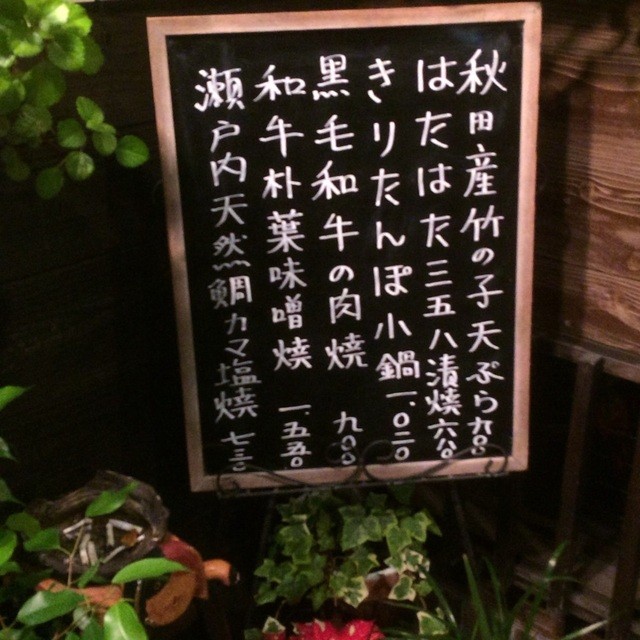 秋田産竹の子天ぷら九八〇
はたはた三五八漬焼六八〇
きりたんぽ小鍋一、〇二〇
黒毛和牛の肉焼 九八〇
和牛朴葉味噌焼 一、五五〇
瀬戸内天然鯛カマ塩焼 七三〇